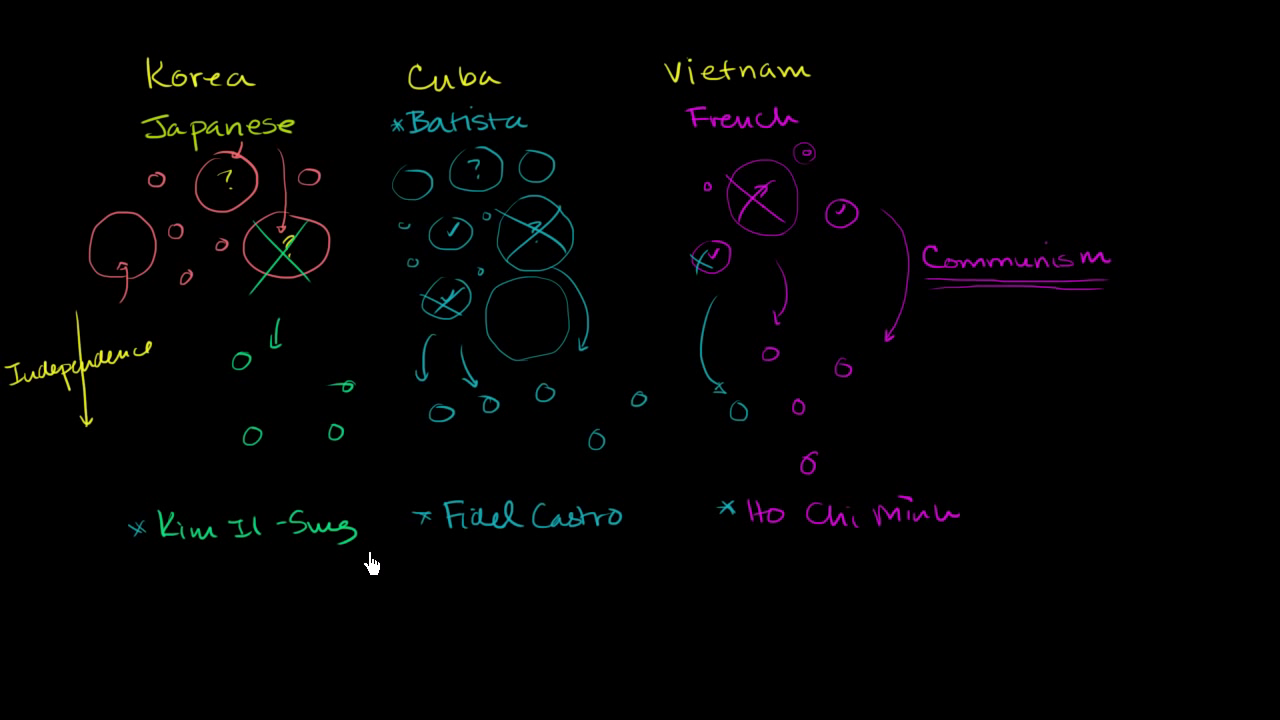 Korea
Japanese
?
?
Independence
* Kim Il-Sung
Cuba
*Batista
?
?
* Fidel Castro
Vietnam
French
Communism
* Ho Chi Minh